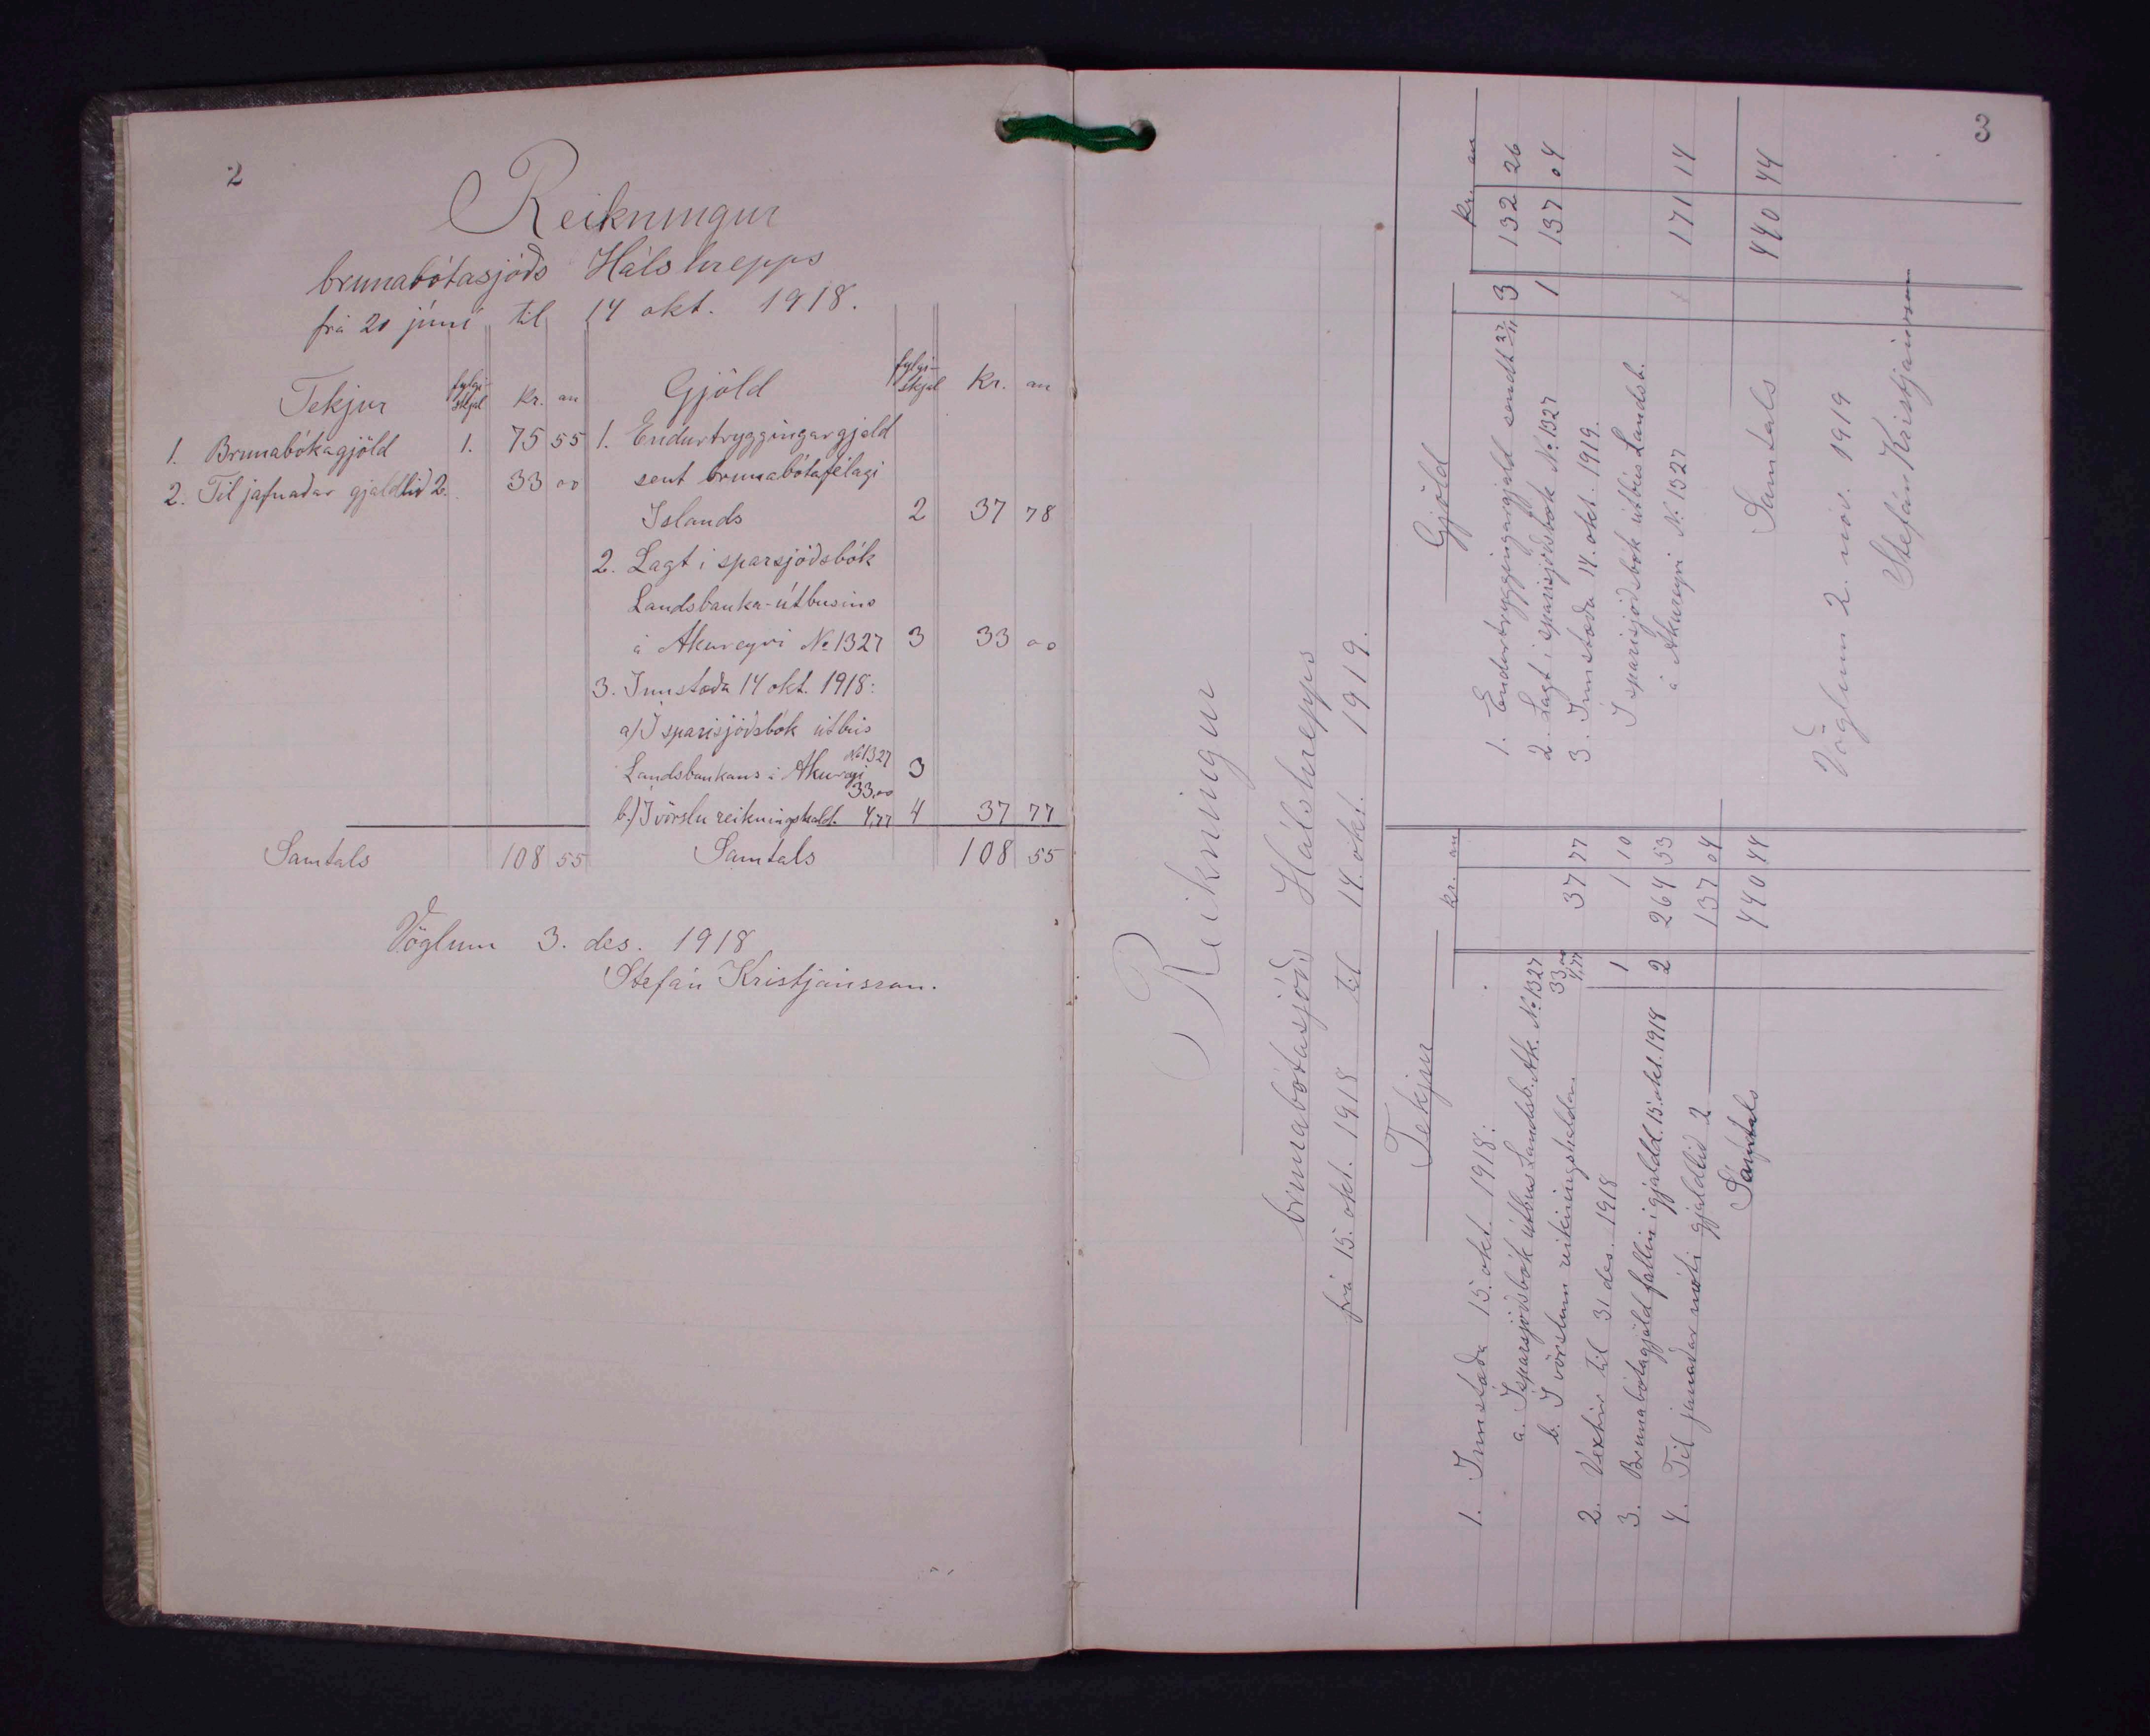 2
Reikningur
brunabótasjóðs Hálshrepps
frá 20 júní til 14 okt. 1918.
Tekjur fylgi-skjal kr. au
1. Brunabókagjöld 1. 75 55
2. Til jafnaðar gjaldlið 2. 33 00
Samtals 108 55
Gjöld fylgi-skjal Kr. au
1. Endurtryggingargjald
sent brunabótafélagi
Íslands 2 37 78
2. Lagt í sparsjóðsbók
Landsbanka-útbúsins
á Akureyri No 1327 3 33 00
3. Innstæða 14 okt. 1918:
a) Í sparisjóðsbók útbús
Landsbankans á Akureyri No 1327 33,00 3
b.) Í vörslu reikningshald. 4,77 4 37 77
Samtals 108 55
Vöglum 3. des. 1918
Stefán Kristjánsson.
3
Reikningur
brunabótasjóðs Hálshrepps
frá 15. okt. 1918 til 14. okt. 1919.
Tekjur
kr. au
1. Innstæða 15. okt. 1918:
a. Í sparsjóðsbók útbús Landsb. Ak. No 1327 33,00
b. Í vörslum reikningshaldara 4,77 37 77
2. Vextir til 31 des. 1918 1 1 10
3. Brunabótagjöld fallin í gjaldd. 15. okt. 1918 2 264 53
4. Til jafnaðar móti gjaldlið 2 137 04
Samtals 440 44
Gjöld
kr. au
1. Endurtryggingargjald sendt 3 132 26
2. Lagt í sparisjóðsbók No 1327 1 137 04
3. Innstæða 14. okt. 1919.
Í sparisjóðsbók útbús Landsb.
á Akureyri No 1327 171 14
Samtals 440 44
Vöglum 2. nóv. 1919
Stefán Kristjánsson